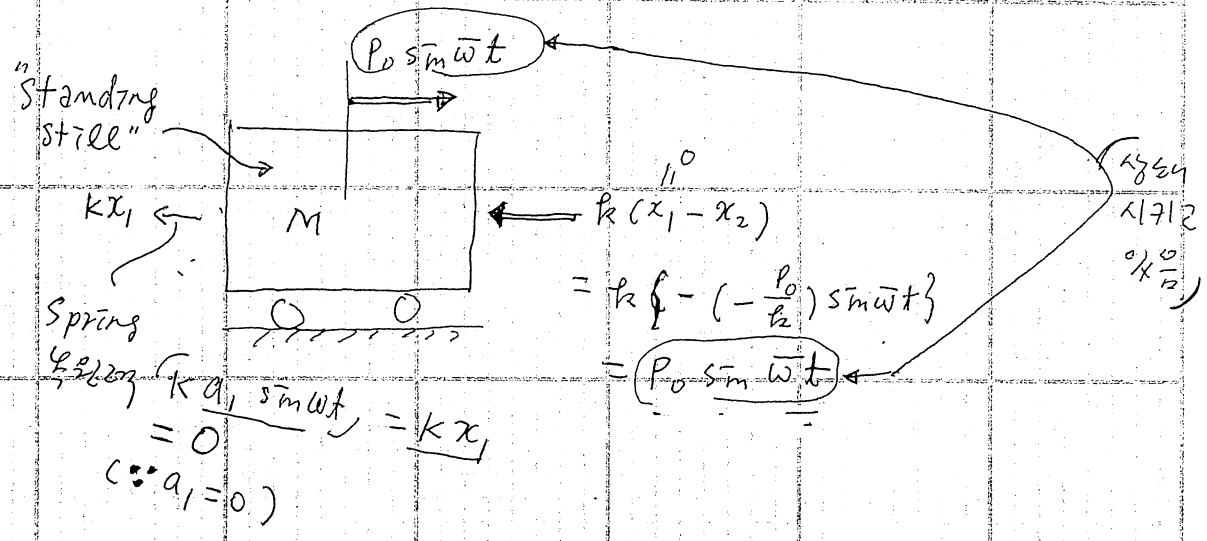 P₀ sin ω̄t
"Standing
still"
Kx₁
M
0
k(x₁ - x₂)
= k{-(-P₀/k) sin ω̄t}
= P₀ sin ω̄t
Spring
복원력 (K a₁ sin ωt) = Kx₁
= 0
(∵ a₁ = 0)
(상쇄
시키고
있음)